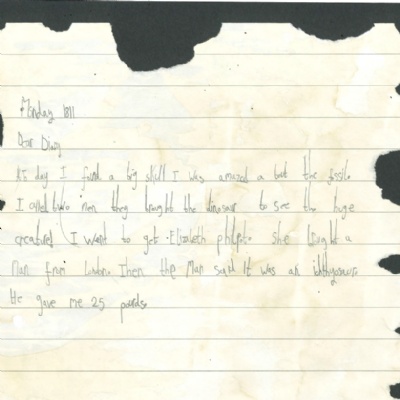 Monday 1811
Dear Diary
day I found a big skull I was amazed a bout the fossile
I called two men they brought the dinosaur to see the huge
creature! I went to get Elizabeth philpot. She brought a
Man from London. Then the Man said It was an ichthyosaurs.
He gave me 25 pounds.